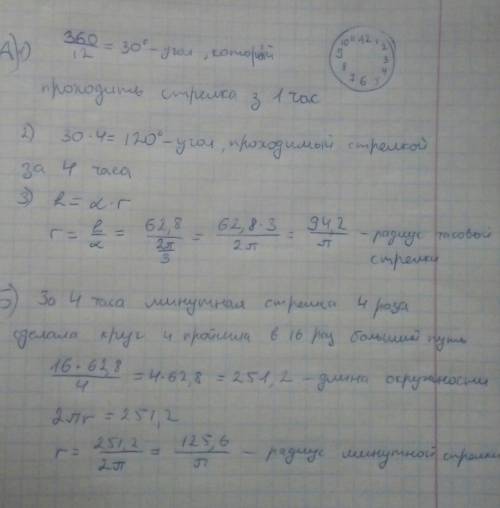 А) 1) 360/12 = 30° – угол, который
проходить стрелка з 1 час
10 11 12 1 2 3 4 6 7 8 9
2) 30·4 = 120° – угол, проходимый стрелкой
за 4 часа
3) l = α·r
r = l/α = 62,8/(2π/3) = 62,8·3/2π = 94,2/π – радиус часовой
стрелки
Б) За 4 часа минутная стрелка 4 раза
сделала круг и пройшла в 16 раз больший путь
16·62,8/4 = 4·62,8 = 251,2 – длина окружности
2πr = 251,2
r = 251,2/2π = 125,6/π – радиус минутной стрелки